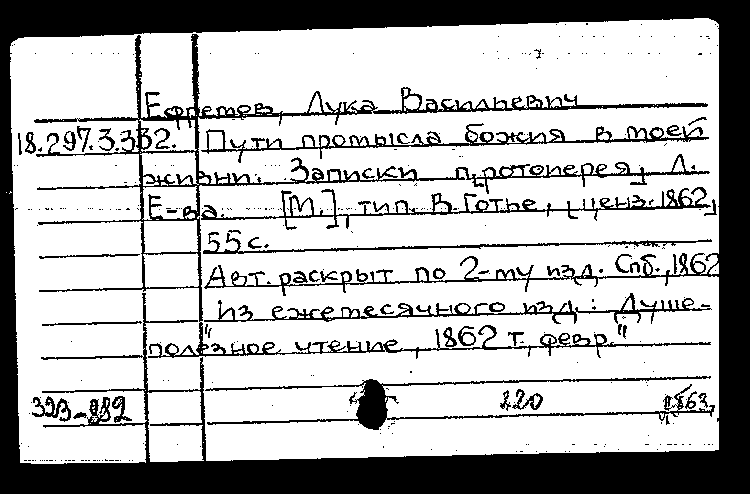 Ефремов, Лука Васильевич
18.297.3.332. Пути промысла божия в моей
жизни. Записки п[ротоиерея] Л.
Е-ва. [М.], тип. В. Готье, [ценз. 1862],
55 с.
Авт. раскрыт по 2-му изд. Спб., 1862
"Из ежемесячного изд.: Душе-
полезное чтение, 1862 г., февр."
220